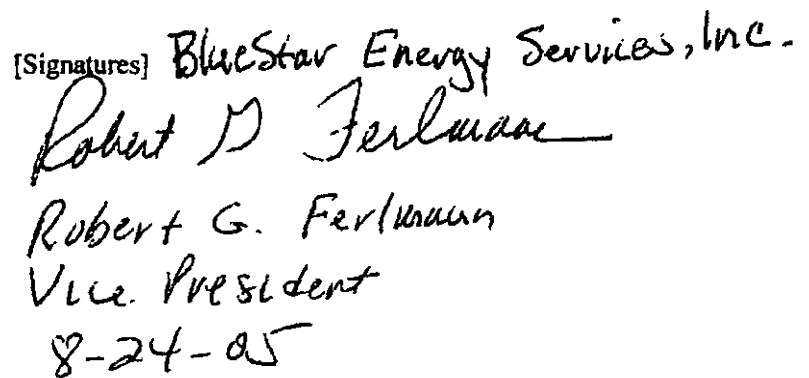 [Signatures] BlueStar Energy Services, Inc.
Robert G Ferlmann
Robert G. Ferlmann
Vice President
8-24-05